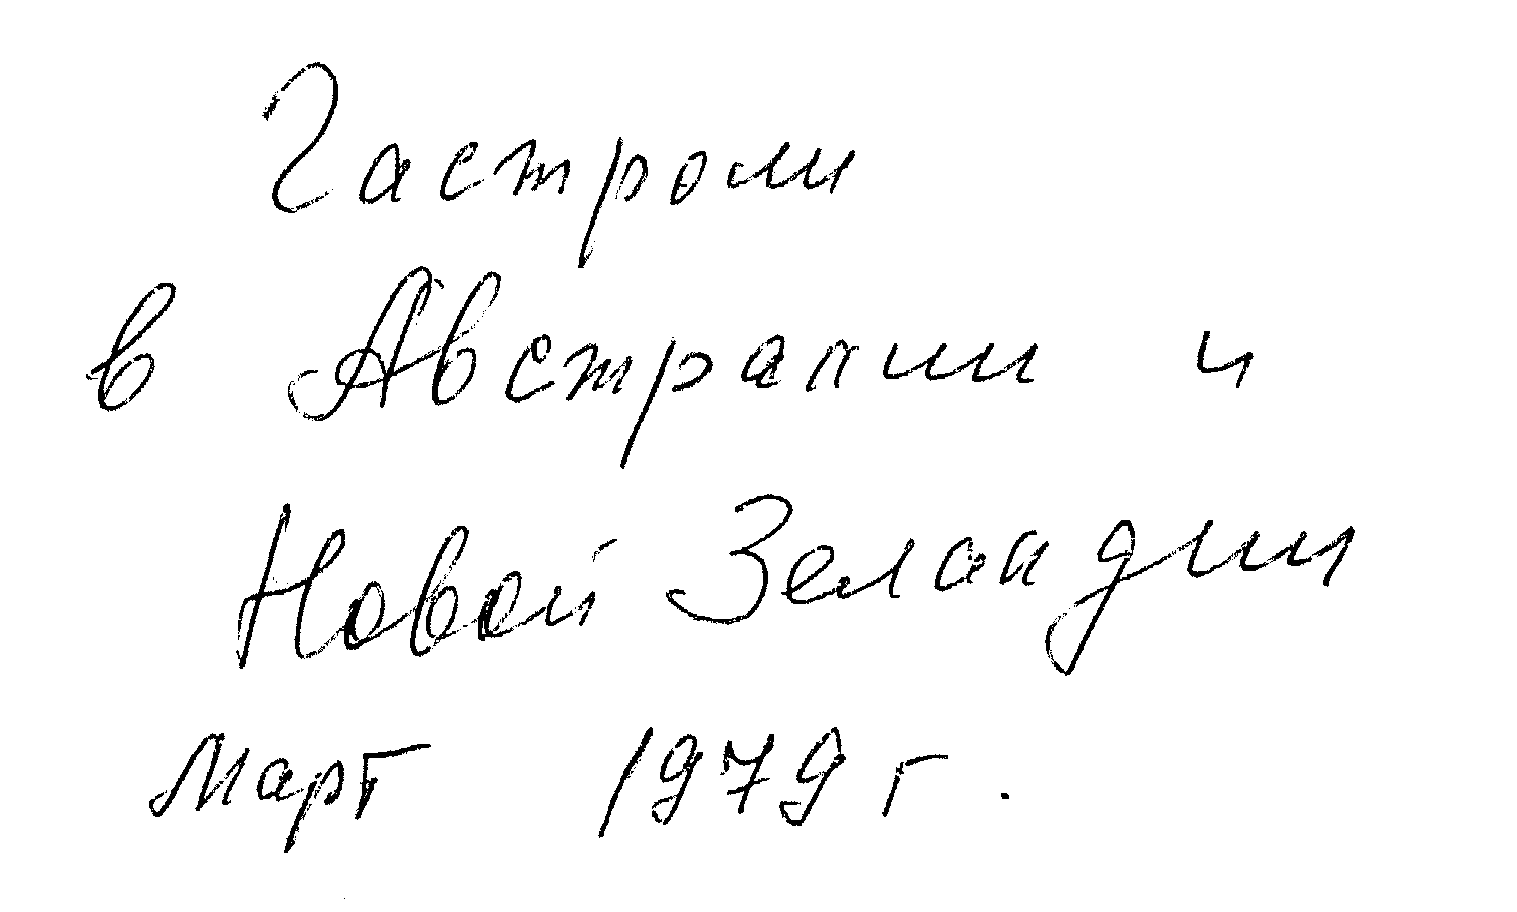 Гастроли
в Австралии и
Новой Зеландии
март 1979 г.